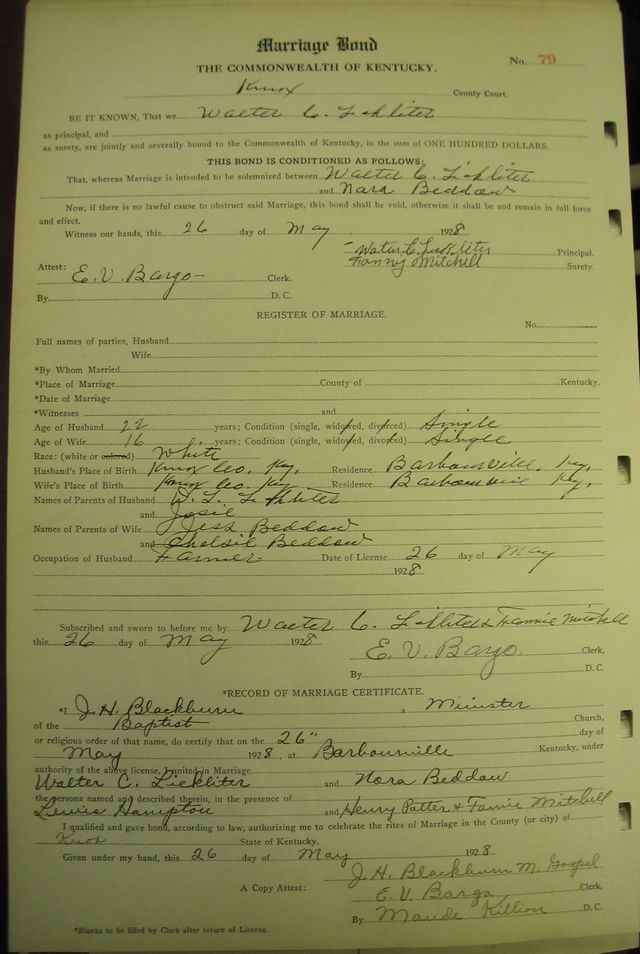 Marriage Bond
No. 79
THE COMMONWEALTH OF KENTUCKY.
Knox County Court.
BE IT KNOWN, That we Walter C. Lickliter
as principal, and
as surety, are jointly and severally bound to the Commonwealth of Kentucky, in the sum of ONE HUNDRED DOLLARS.
THIS BOND IS CONDITIONED AS FOLLOWS:
That, whereas Marriage is intended to be solemnized between Walter C. Lickliter
and Nora Beddow
Now, if there is no lawful cause to obstruct said Marriage, this bond shall be void, otherwise it shall be and remain in full force
and effect.
Witness our hands, this 26 day of May 1928
Walter C Lickliter Principal.
Fanny Mitchell Surety.
Attest: E. V. Bargo Clerk.
By D. C.
REGISTER OF MARRIAGE.
No.
Full names of parties, Husband
Wife
*By Whom Married
*Place of Marriage County of Kentucky.
*Date of Marriage
*Witnesses and
Age of Husband 22 years; Condition (single, widowed, divorced) Single
Age of Wife 16 years; Condition (single, widowed, divorced) Single
Race: (white or colored) White
Husband's Place of Birth Knox Co. Ky. Residence Barbourville, Ky,
Wife's Place of Birth Knox Co. Ky Residence Barbourville Ky,
Names of Parents of Husband L. Lickliter
and Josie
Names of Parents of Wife Jess Beddow
and Chelsie Beddow
Occupation of Husband Farmer Date of License 26 day of May
1928
Subscribed and sworn to before me by Walter C. Lickliter & Fannie Mitchell
this 26 day of May 1928
E. V. Bargo. Clerk,
By D. C.
*RECORD OF MARRIAGE CERTIFICATE.
*I, J. H. Blackburn a Minister
of the Baptist Church,
or religious order of that name, do certify that on the 26" day of
May 1928, at Barbourville Kentucky, under
authority of the above license, I united in Marriage
Walter C. Lickliter and Nora Beddow
the persons named and described therein, in the presence of
Lewis Hampton and Henry Patter & Fannie Mitchell
I qualified and gave bond, according to law, authorizing me to celebrate the rites of Marriage in the County (or city) of
Knox State of Kentucky.
Given under my hand, this 26 day of May 1928
J. H. Blackburn M. Gospel
A Copy Attest: E. V. Bargo Clerk,
By Maude Killion D. C.
*Blanks to be filled by Clerk after return of License.